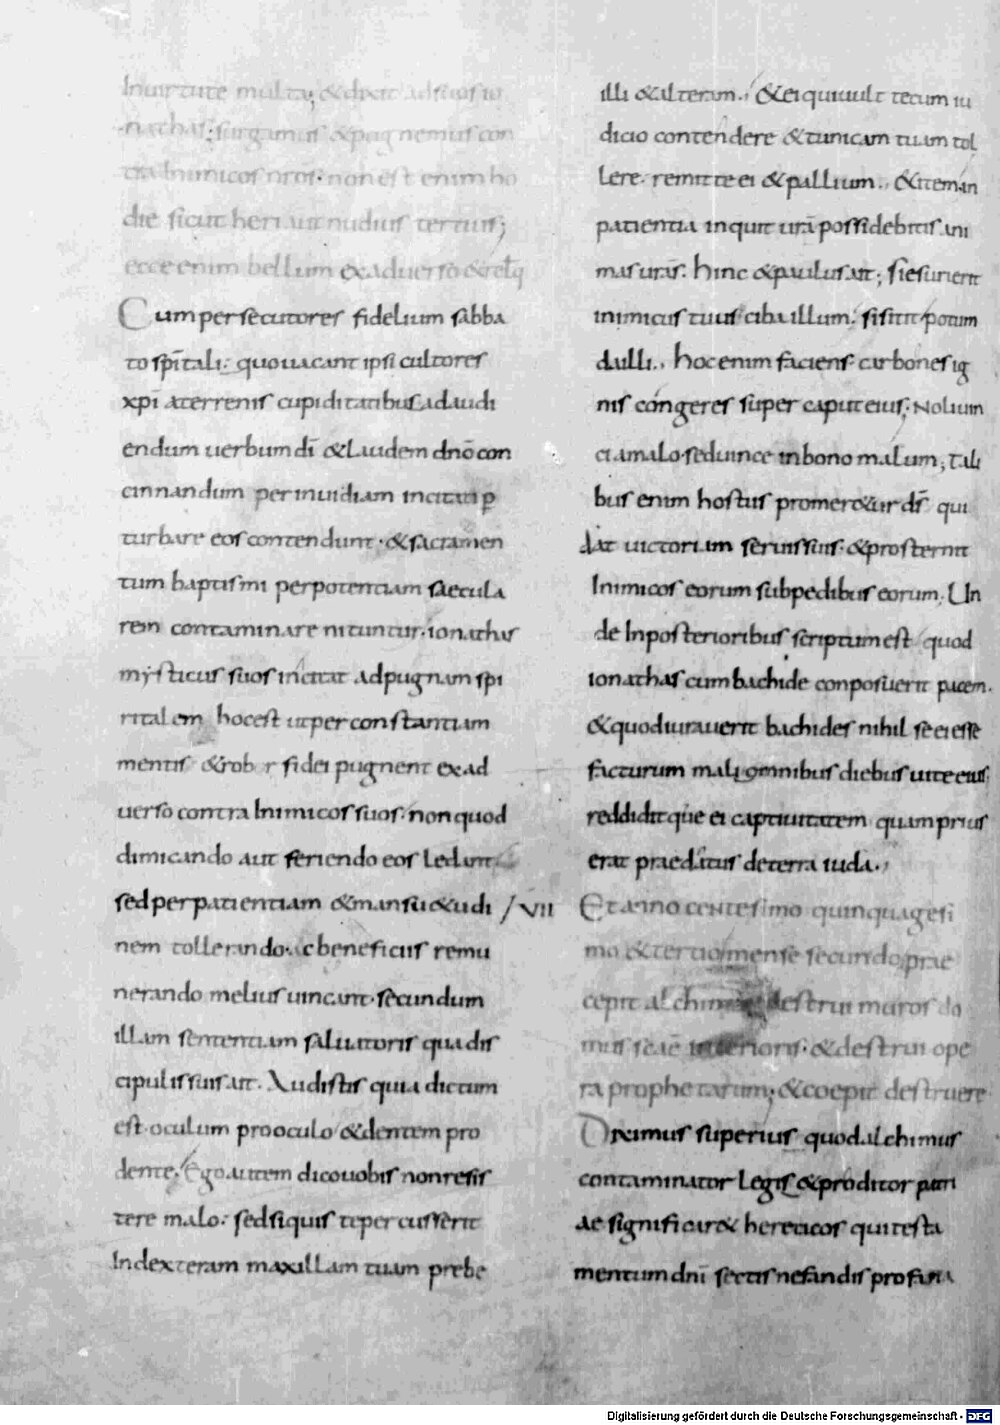 In uirtute multa; & dixit ad suos io
nathas; surgamus & pugnemus con
tra Inimicos nr̄os· non est enim ho
die sicut heri aut nudius tertius;
ecce enim bellum ex aduerso & relq̄
Cum persecutores fidelium sabba
to sp̄itali· quo uacant ipsi cultores
xp̄i a terrenis cupiditatibus ad audi
endum uerbum dī & laudem dn̄o con
cinnandum per inuidiam incitati ꝑ
turbare eos contendunt· & sacramen
tum baptismi per potentiam saecula
rem contaminare nituntur· ionathas
mysticus suos incitat ad pugnam spi
ritalem hoc est ut per constantiam
mentis & robur fidei pugnent ex ad
uerso contra Inimicos suos· non quod
dimicando aut feriendo eos ledant
sed per patientiam & mansu&udi
nem tollerando· ac beneficiis remu
nerando melius uincant· secundum
illam sententiam saluatoris qua dis
cipulis suis ait. Audistis quia dictum
est· oculum pro oculo & dentem pro
dente. Ego autem dico uobis non resis
tere malo· sed si quis te percusserit
In dexteram maxillam tuam prebe
illi & alteram.. & ei qui uult tecum iu
dicio contendere & tunicam tuam tol
lere· remitte ei & pallium.. & item in
patientia inquit urā possidebitis ani
mas urās. hinc & paulus ait; si esurierit
inimicus tuus ciba illum; si sitit potum
da illi.. hoc enim faciens· carbones ig
nis congeres super caput eius; Noli uin
ci a malo· sed uince in bono malum; Tali
bus enim hostiis promer&ur dī qui
dat uictoriam seruis suis· & prosternit
Inimicos eorum sub pedibus eorum. Un
de In posterioribus scriptum est quod
ionathas cum bachide conposuerit pacem.
& quod iurauerit bachides nihil se ei esse
facturum mali omnibus diebus uite eius
reddiditque ei captiuitatem quam prius
erat praedatus de terra iuda.,
VII Et anno centesimo quinquagesi
mo & tertio mense secundo prae
cepit alchimus destrui muros do
mus scāe interioris· & destrui ope
ra prophetarum; & coepit destruere
Diximus superius quod alchimus
contaminator legis & proditor patri
ae significar& hereticos qui testa
mentum dn̄i sectis nefandis profana
Digitalisierung gefördert durch die Deutsche Forschungsgemeinschaft - DFG